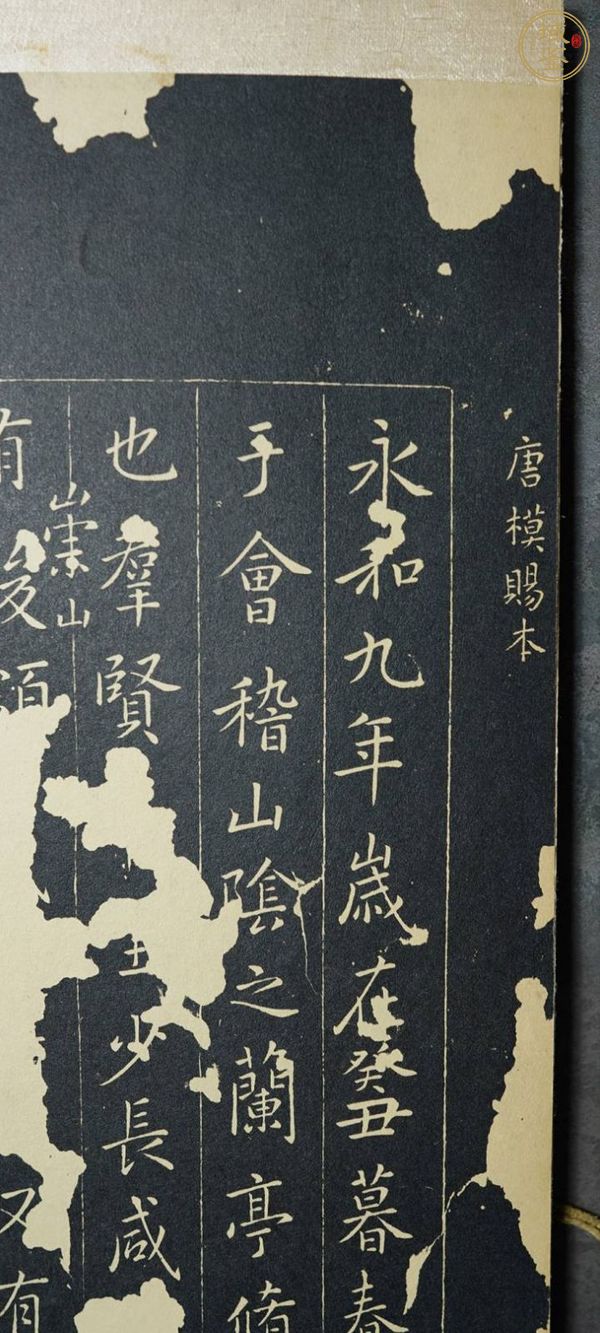 唐模賜本
永和九年歳在癸丑暮春
于會稽山陰之蘭亭脩
也羣賢少長咸
崇山
有
又有